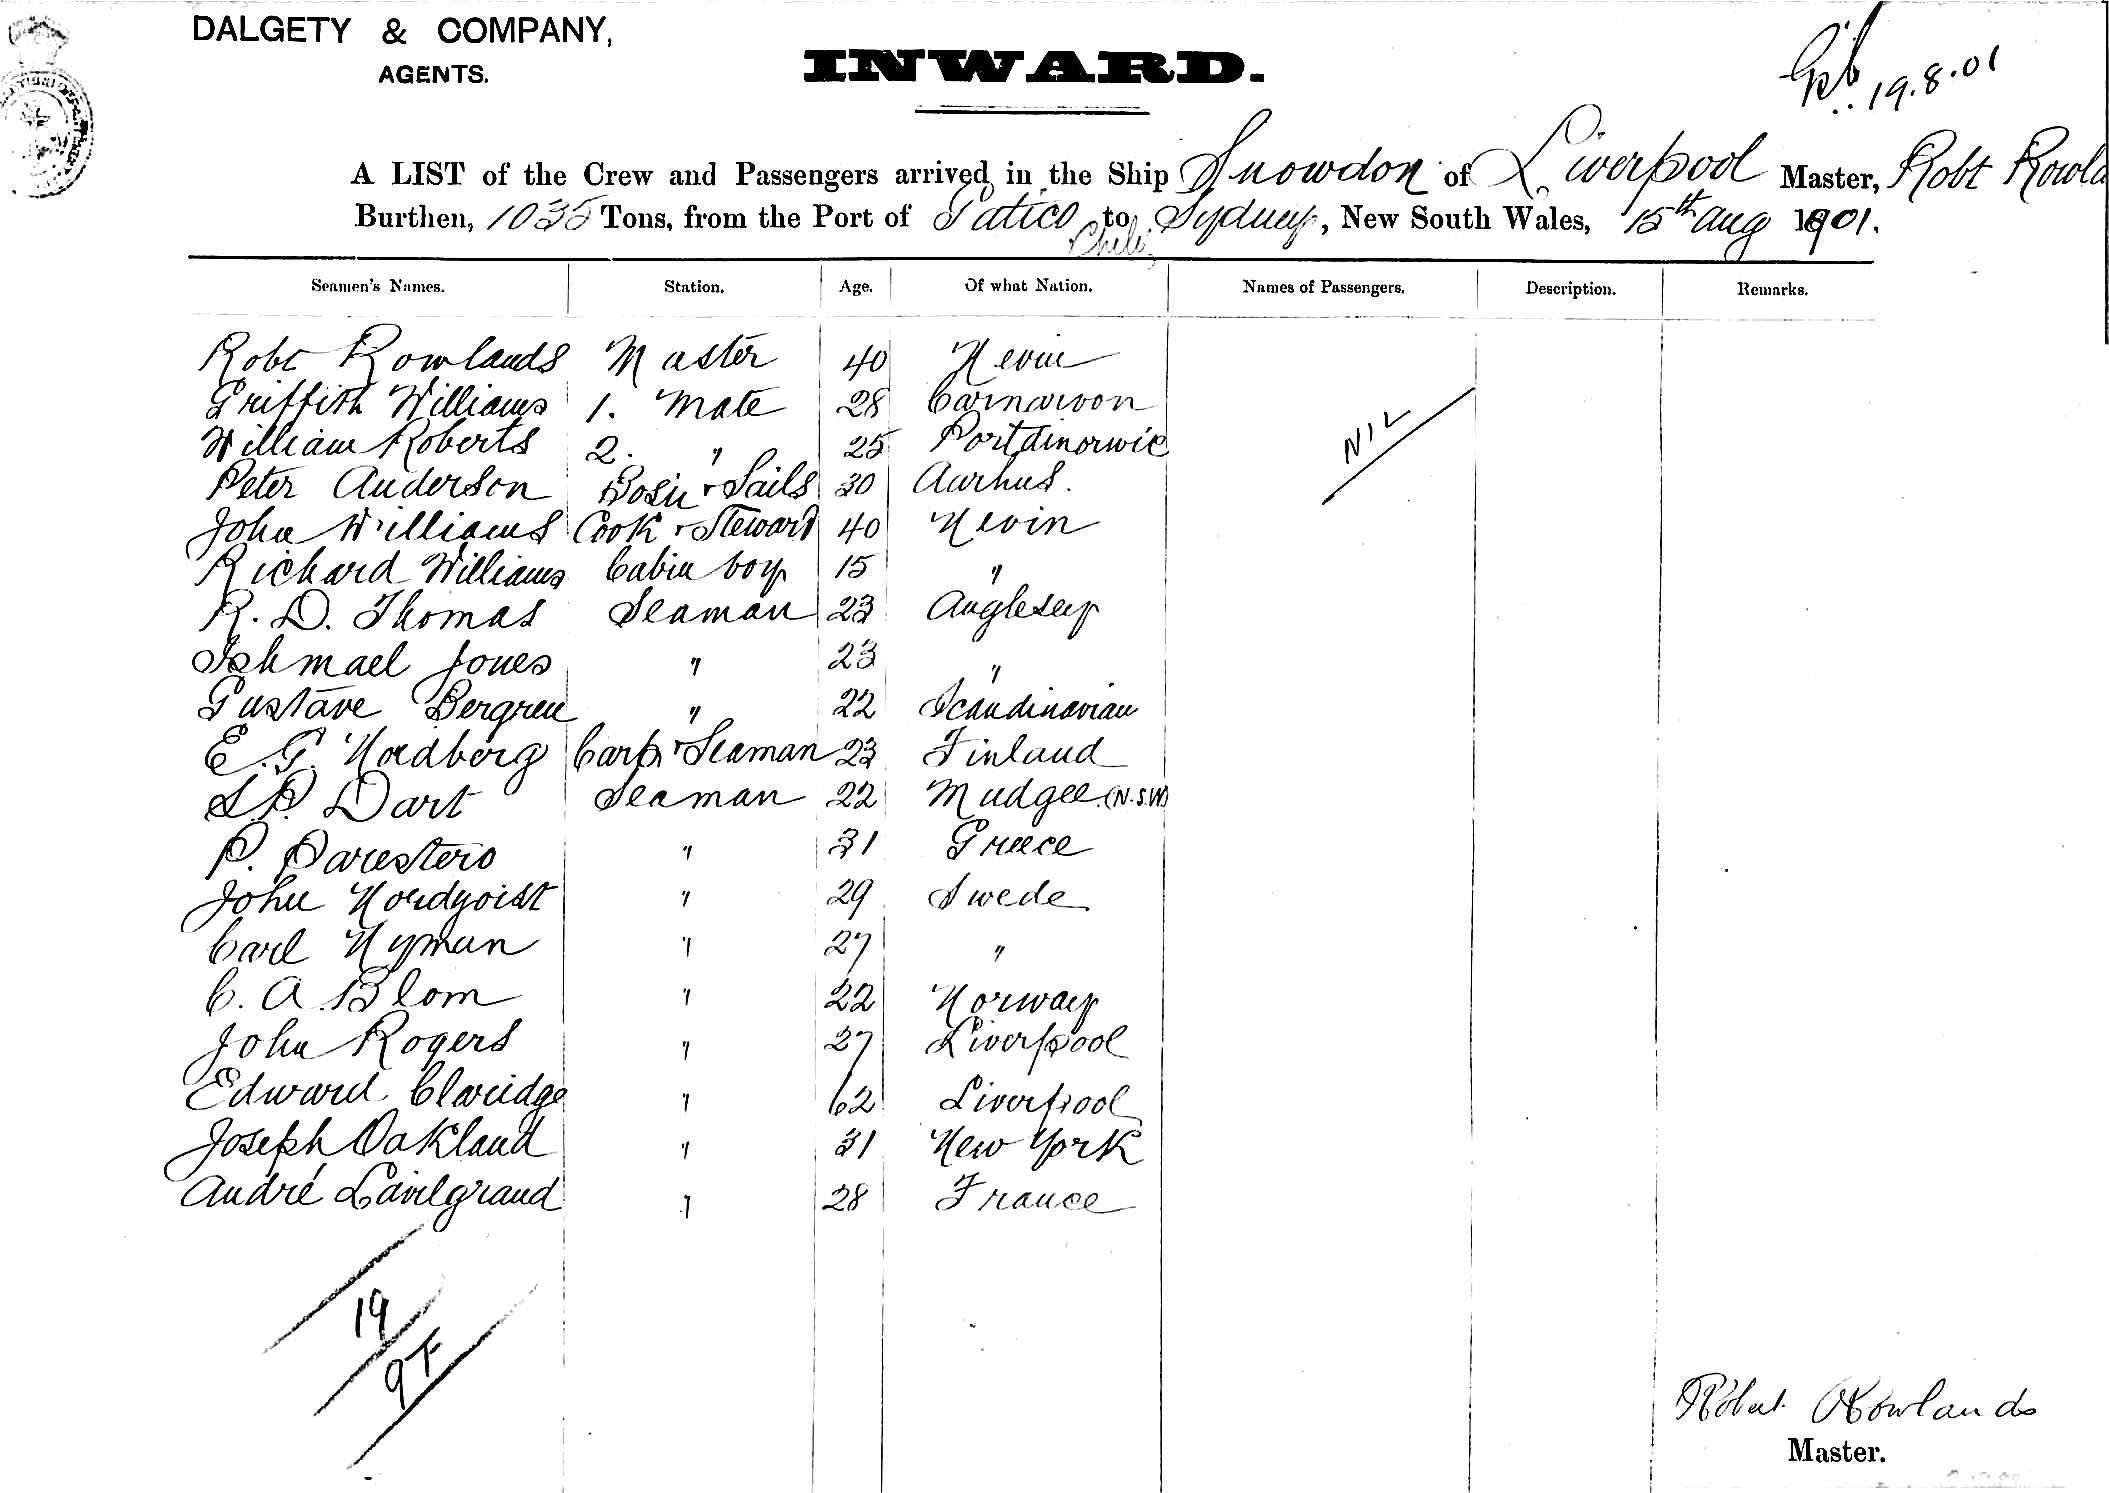 DALGETY & COMPANY,
AGENTS.
INWARD.
19.8.01
A LIST of the Crew and Passengers arrived in the Ship Snowdon of Liverpool Master, Robt Rowla
Burthen, 1035 Tons, from the Port of Patico to Sydney, New South Wales, 15th Aug 1901.
Chili
Seamen's Names. Station. Age. Of what Nation. Names of Passengers. Description. Remarks.
Robt Rowlands Master 40 Nevin
Griffith Williams 1. Mate 28 Carnarvon
William Roberts 2. " 25 Portdinorwic
NIL
Peter Anderson Bosn + Sails 30 Aarhus.
John Williams Cook + Steward 40 Nevin
Richard Williams Cabin boy 15 "
R. D. Thomas Seaman 23 Anglesey
Ishmael Jones " 23 "
Gustave Bergren " 22 Scandinavian
E. G. Nordberg Carp + Seaman 23 Finland
S.P. Dart Seaman 22 Mudgee (N.S.W)
P. Parestero " 31 Greece
John Nordqvist " 29 Swede
Carl Nyman " 27 "
C. A. Blom " 22 Norway
John Rogers " 27 Liverpool
Edward Claridge " 62 Liverpool
Joseph Oakland " 31 New York
André Lavilgrand " 28 France
19
9F
Robert Rowlands
Master.